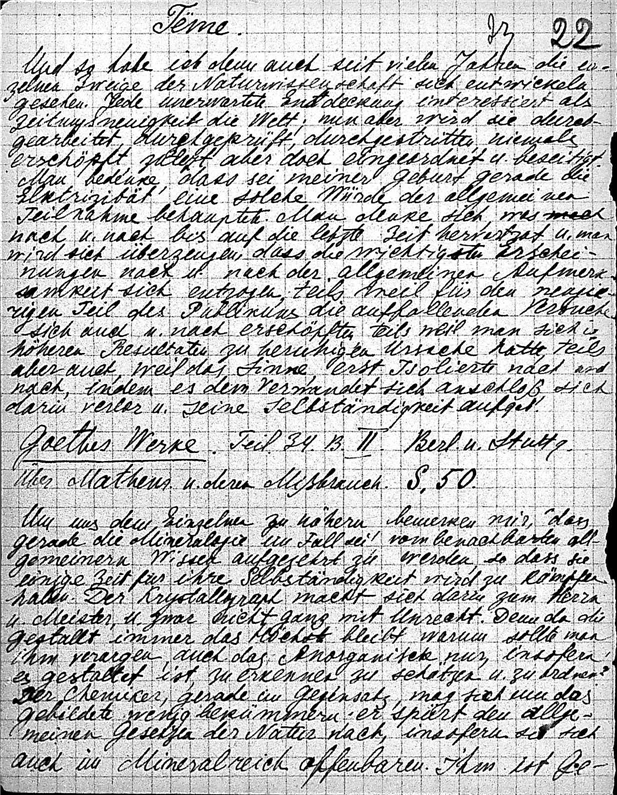 Tëme.
22
Und so habe ich denn auch seit vielen Jahren die ein-
zelnen Zweige der Naturwissenschaft sich entwickeln
gesehen. Jede unerwartete Entdeckung interessiert als
Zeitungsneuigkeit die Welt; nun aber wird sie durch
gearbeitet, durchgeprüft, durchgestritten, niemals
erschöpft, zuletzt aber doch eingeordnet u. beseitigt
Man bedenke, dass sei meiner Geburt gerade die
Elektrizität eine solche Würde der allgemeinen
Teilnahme behauptete. Man denke sich was
nach u. nach bis auf die letzte Zeit hervortrat u. man
wird sich überzeugen, dass die wichtigsten Erschei-
nungen nach u. nach der allgemeinen Aufmerk-
samkeit sich entzogen, teils weil für den neugie-
rigen Teil des Publikums die auffallenden Versuche
sich nach u. nach erschöpften, teils weil man sich in
höheren Resultaten zu beruhigen Ursache hatte, teils
aber auch, weil das, erst Isolierte nach und
nach, indem es dem Verwandet sich anschloß, sich
darin verlor u. seine Selbständigkeit aufgab.
Goethes Werke. Teil 34 B II Berl. u. Stuttg.
Über Mathem. u. deren Missbrauch. S. 50
Um uns dem Einzelnen zu nähern bemerken wir, dass
gerade die Mineralogie im Fall sei vom benachbarten all-
gemeinern Wissen aufgezehrt zu werden, so dass sie
einige Zeit für ihre Selbständigkeit wird zu kämpfen
haben. Der Krystallograph macht sich darin zum Herrn
u. Meister, u. zwar nicht ganz mit Unrecht. Denn da die
Gestalt immer das Höchste bleibt, warum sollte man
ihm verargen, auch das Anorganische nur, insofern
es gestaltet ist, zu erkennen zu schätzen u. zu ordnen?
Der Chemiker, gerade im Gegensatz, mag sich um das
gebildete wenig bekümmern; er spürt den allge-
meinen Gesetzen der Natur nach, insofern sie sich
auch im Mineralreich offenbaren. Ihm ist Ge-